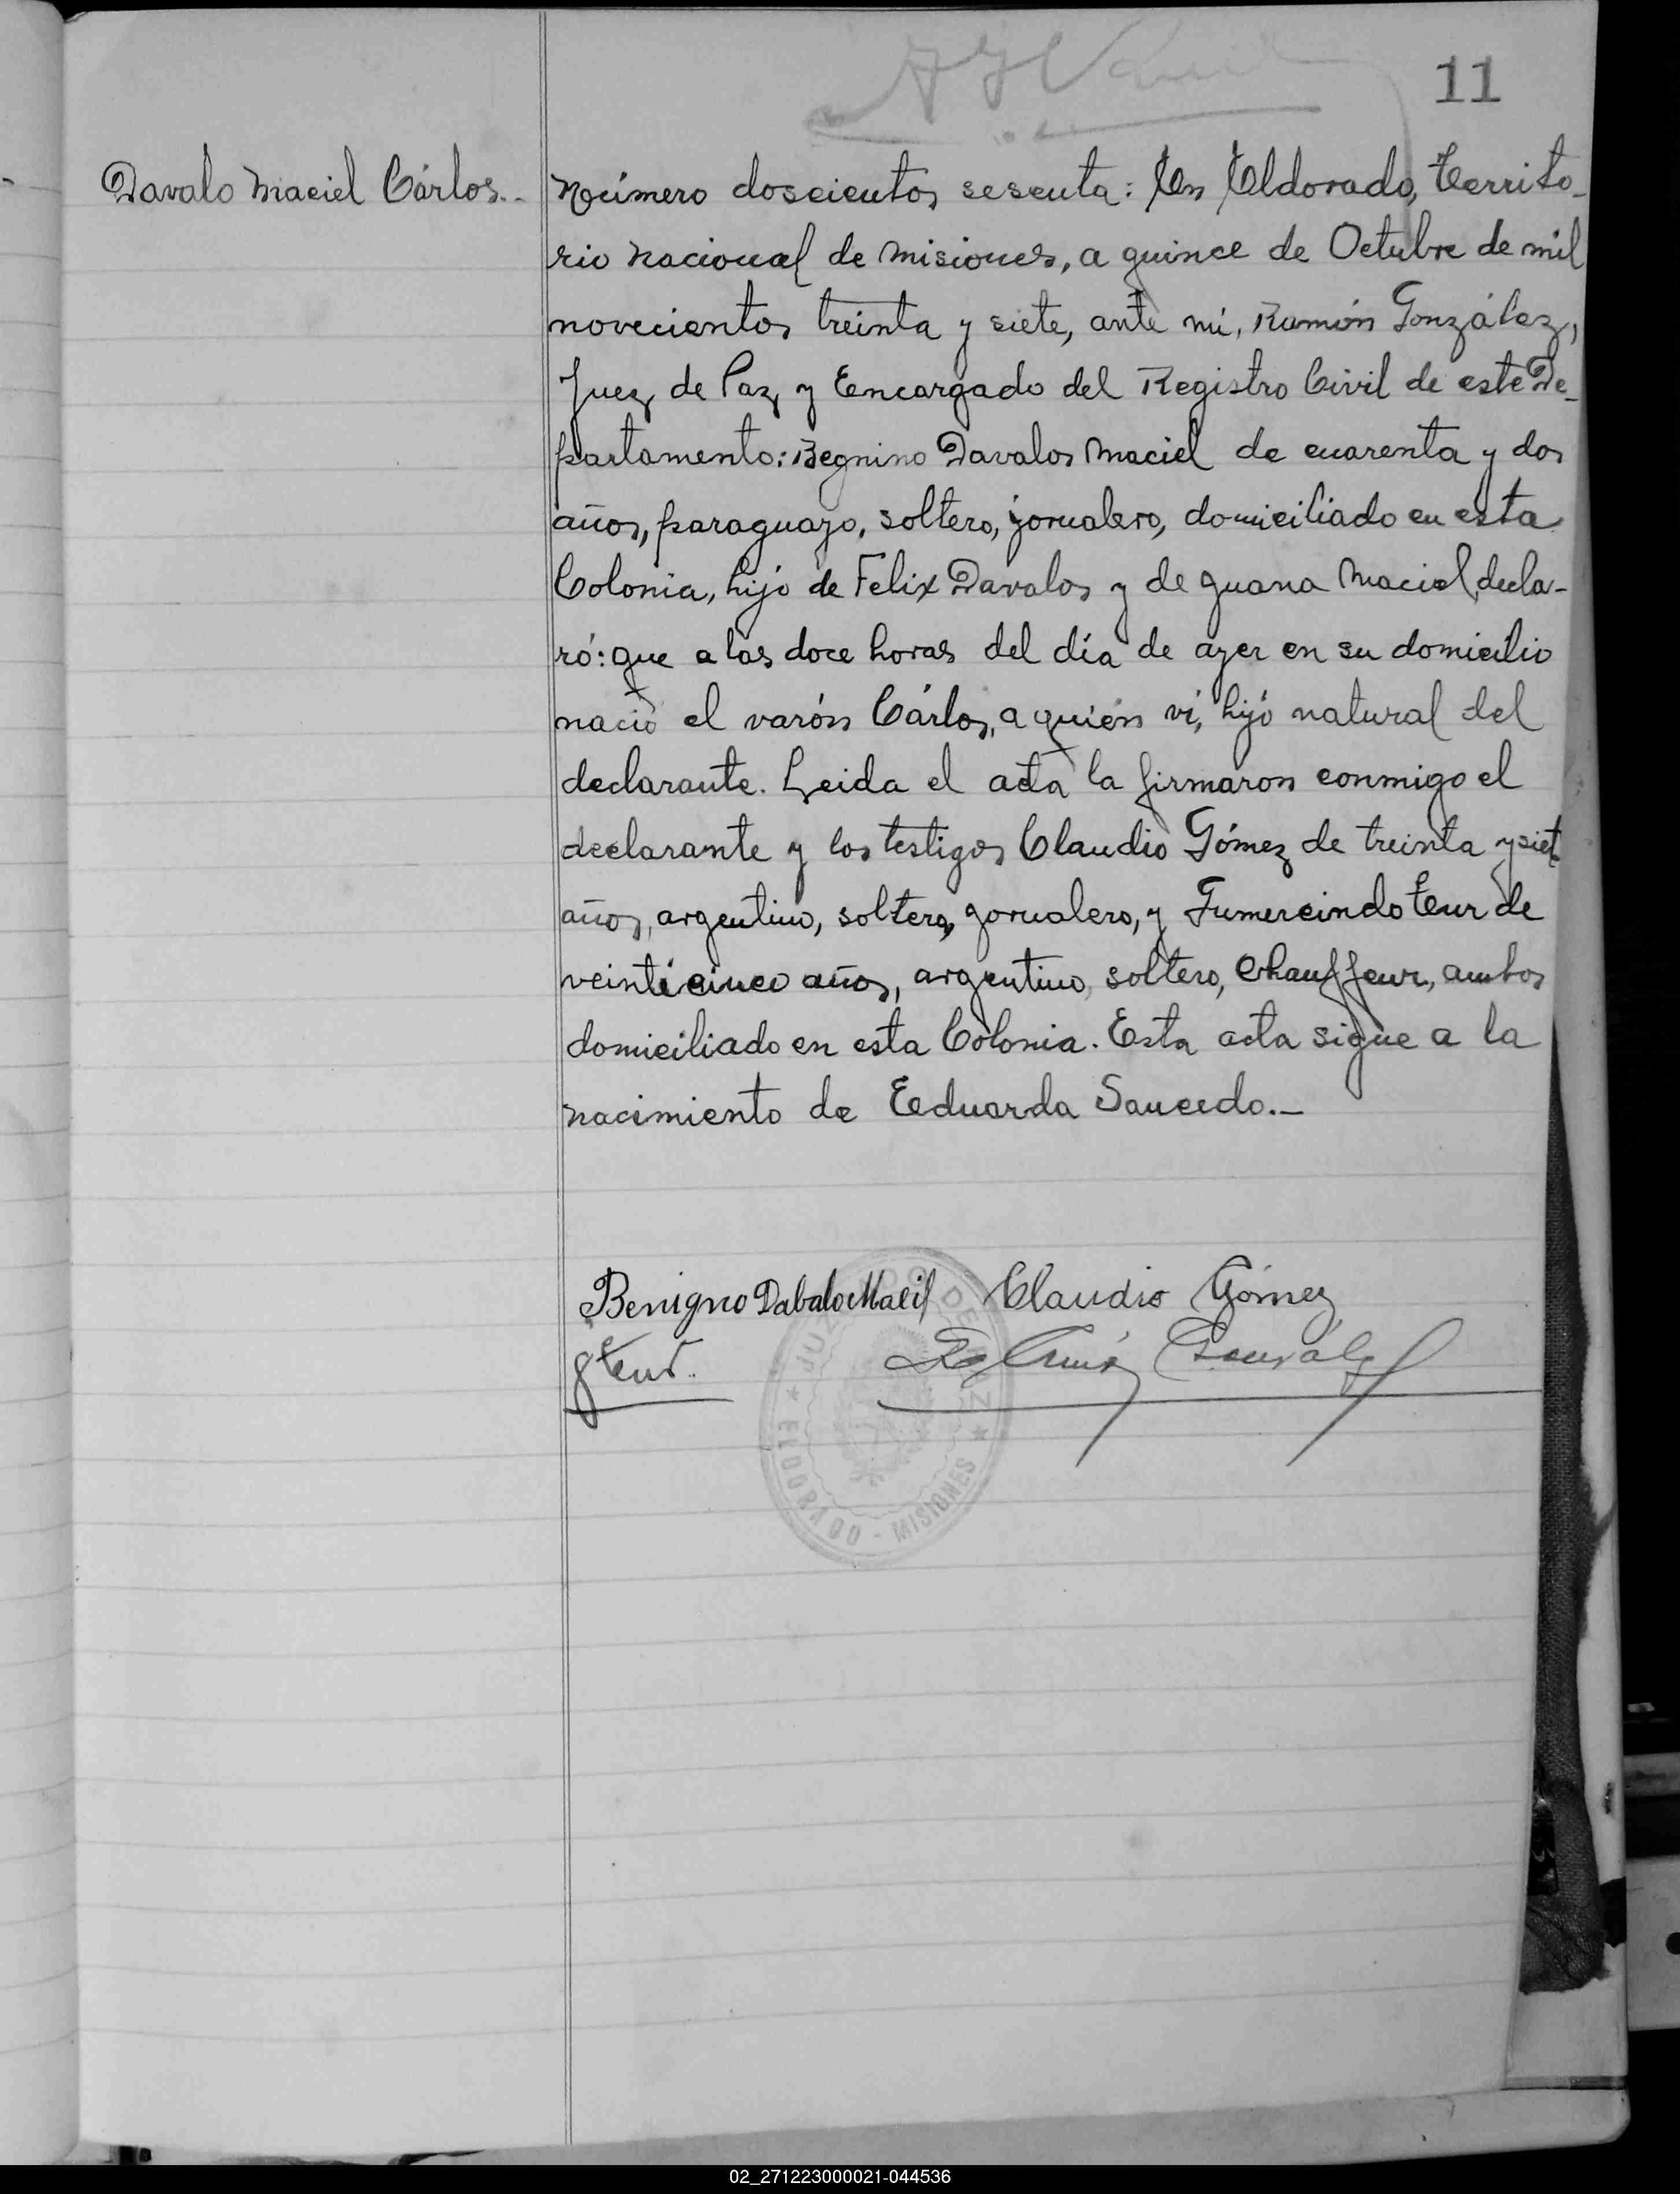 11
Davalo Maciel Cárlos..
Número doscientos sesenta: En Eldorado, Territo-
rio Nacional de Misiones, a quince de Octubre de mil
novecientos treinta y siete, ante mi, Ramón González,
Juez de Paz y Encargado del Registro Civil de este De-
partamento: Begnino Davalos Maciel de cuarenta y dos
años, paraguayo, soltero, jornalero, domiciliado en esta
Colonia, hijo de Felix Davalos y de Juana Maciel, decla-
ró: que a las doce horas del día de ayer en su domicilio
nació el varón Cárlos, a quién vi, hijo natural del
declarante. Leida el acta la firmaron conmigo el
declarante y los testigos Claudio Gómez de treinta y siet
años, argentino, soltero, jornalero, y Gumercindo Eeur de
veinticinco años, argentino, soltero, Chauffeur, ambos
domiciliado en esta Colonia. Esta acta sigue a la
nacimiento de Eduarda Saucedo.-
Benigno Dabalo Macil Claudio Gómez
Ramón González
JUZGADO DE PAZ
* ELDORADO - MISIONES *
02_271223000021-044536